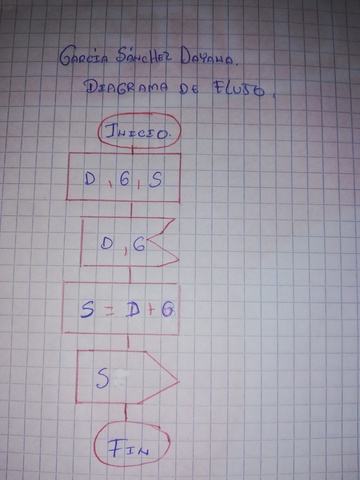 GARCÍA SÁNCHEZ DAYANA.
DIAGRAMA DE FLUJO.
INICIO.
D , G , S
D , G
S = D + G
S
FIN